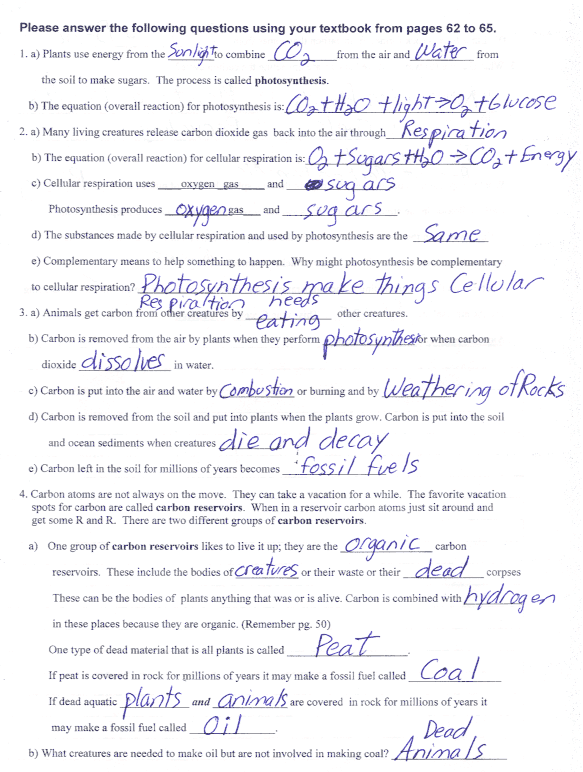 Please answer the following questions using your textbook from pages 62 to 65.
1. a) Plants use energy from the Sunlight to combine CO2 from the air and Water from
the soil to make sugars. The process is called photosynthesis.
b) The equation (overall reaction) for photosynthesis is: CO2 + H2O + light → O2 + Glucose
2. a) Many living creatures release carbon dioxide gas back into the air through Respiration
b) The equation (overall reaction) for cellular respiration is: O2 + Sugars + H2O → CO2 + Energy
c) Cellular respiration uses oxygen gas and sugars
Photosynthesis produces oxygen gas and sugars.
d) The substances made by cellular respiration and used by photosynthesis are the Same
e) Complementary means to help something to happen. Why might photosynthesis be complementary
to cellular respiration? Photosynthesis make things Cellular
Respiraltion needs
3. a) Animals get carbon from other creatures by eating other creatures.
b) Carbon is removed from the air by plants when they perform photosynthesis or when carbon
dioxide dissolves in water.
c) Carbon is put into the air and water by Combustion or burning and by Weathering of Rocks
d) Carbon is removed from the soil and put into plants when the plants grow. Carbon is put into the soil
and ocean sediments when creatures die and decay
e) Carbon left in the soil for millions of years becomes fossil fuels
4. Carbon atoms are not always on the move. They can take a vacation for a while. The favorite vacation
spots for carbon are called carbon reservoirs. When in a reservoir carbon atoms just sit around and
get some R and R. There are two different groups of carbon reservoirs.
a) One group of carbon reservoirs likes to live it up; they are the Organic carbon
reservoirs. These include the bodies of Creatures or their waste or their dead corpses
These can be the bodies of plants anything that was or is alive. Carbon is combined with hydrogen
in these places because they are organic. (Remember pg. 50)
One type of dead material that is all plants is called Peat.
If peat is covered in rock for millions of years it may make a fossil fuel called Coal
If dead aquatic plants and animals are covered in rock for millions of years it
may make a fossil fuel called Oil.
b) What creatures are needed to make oil but are not involved in making coal? Dead Animals